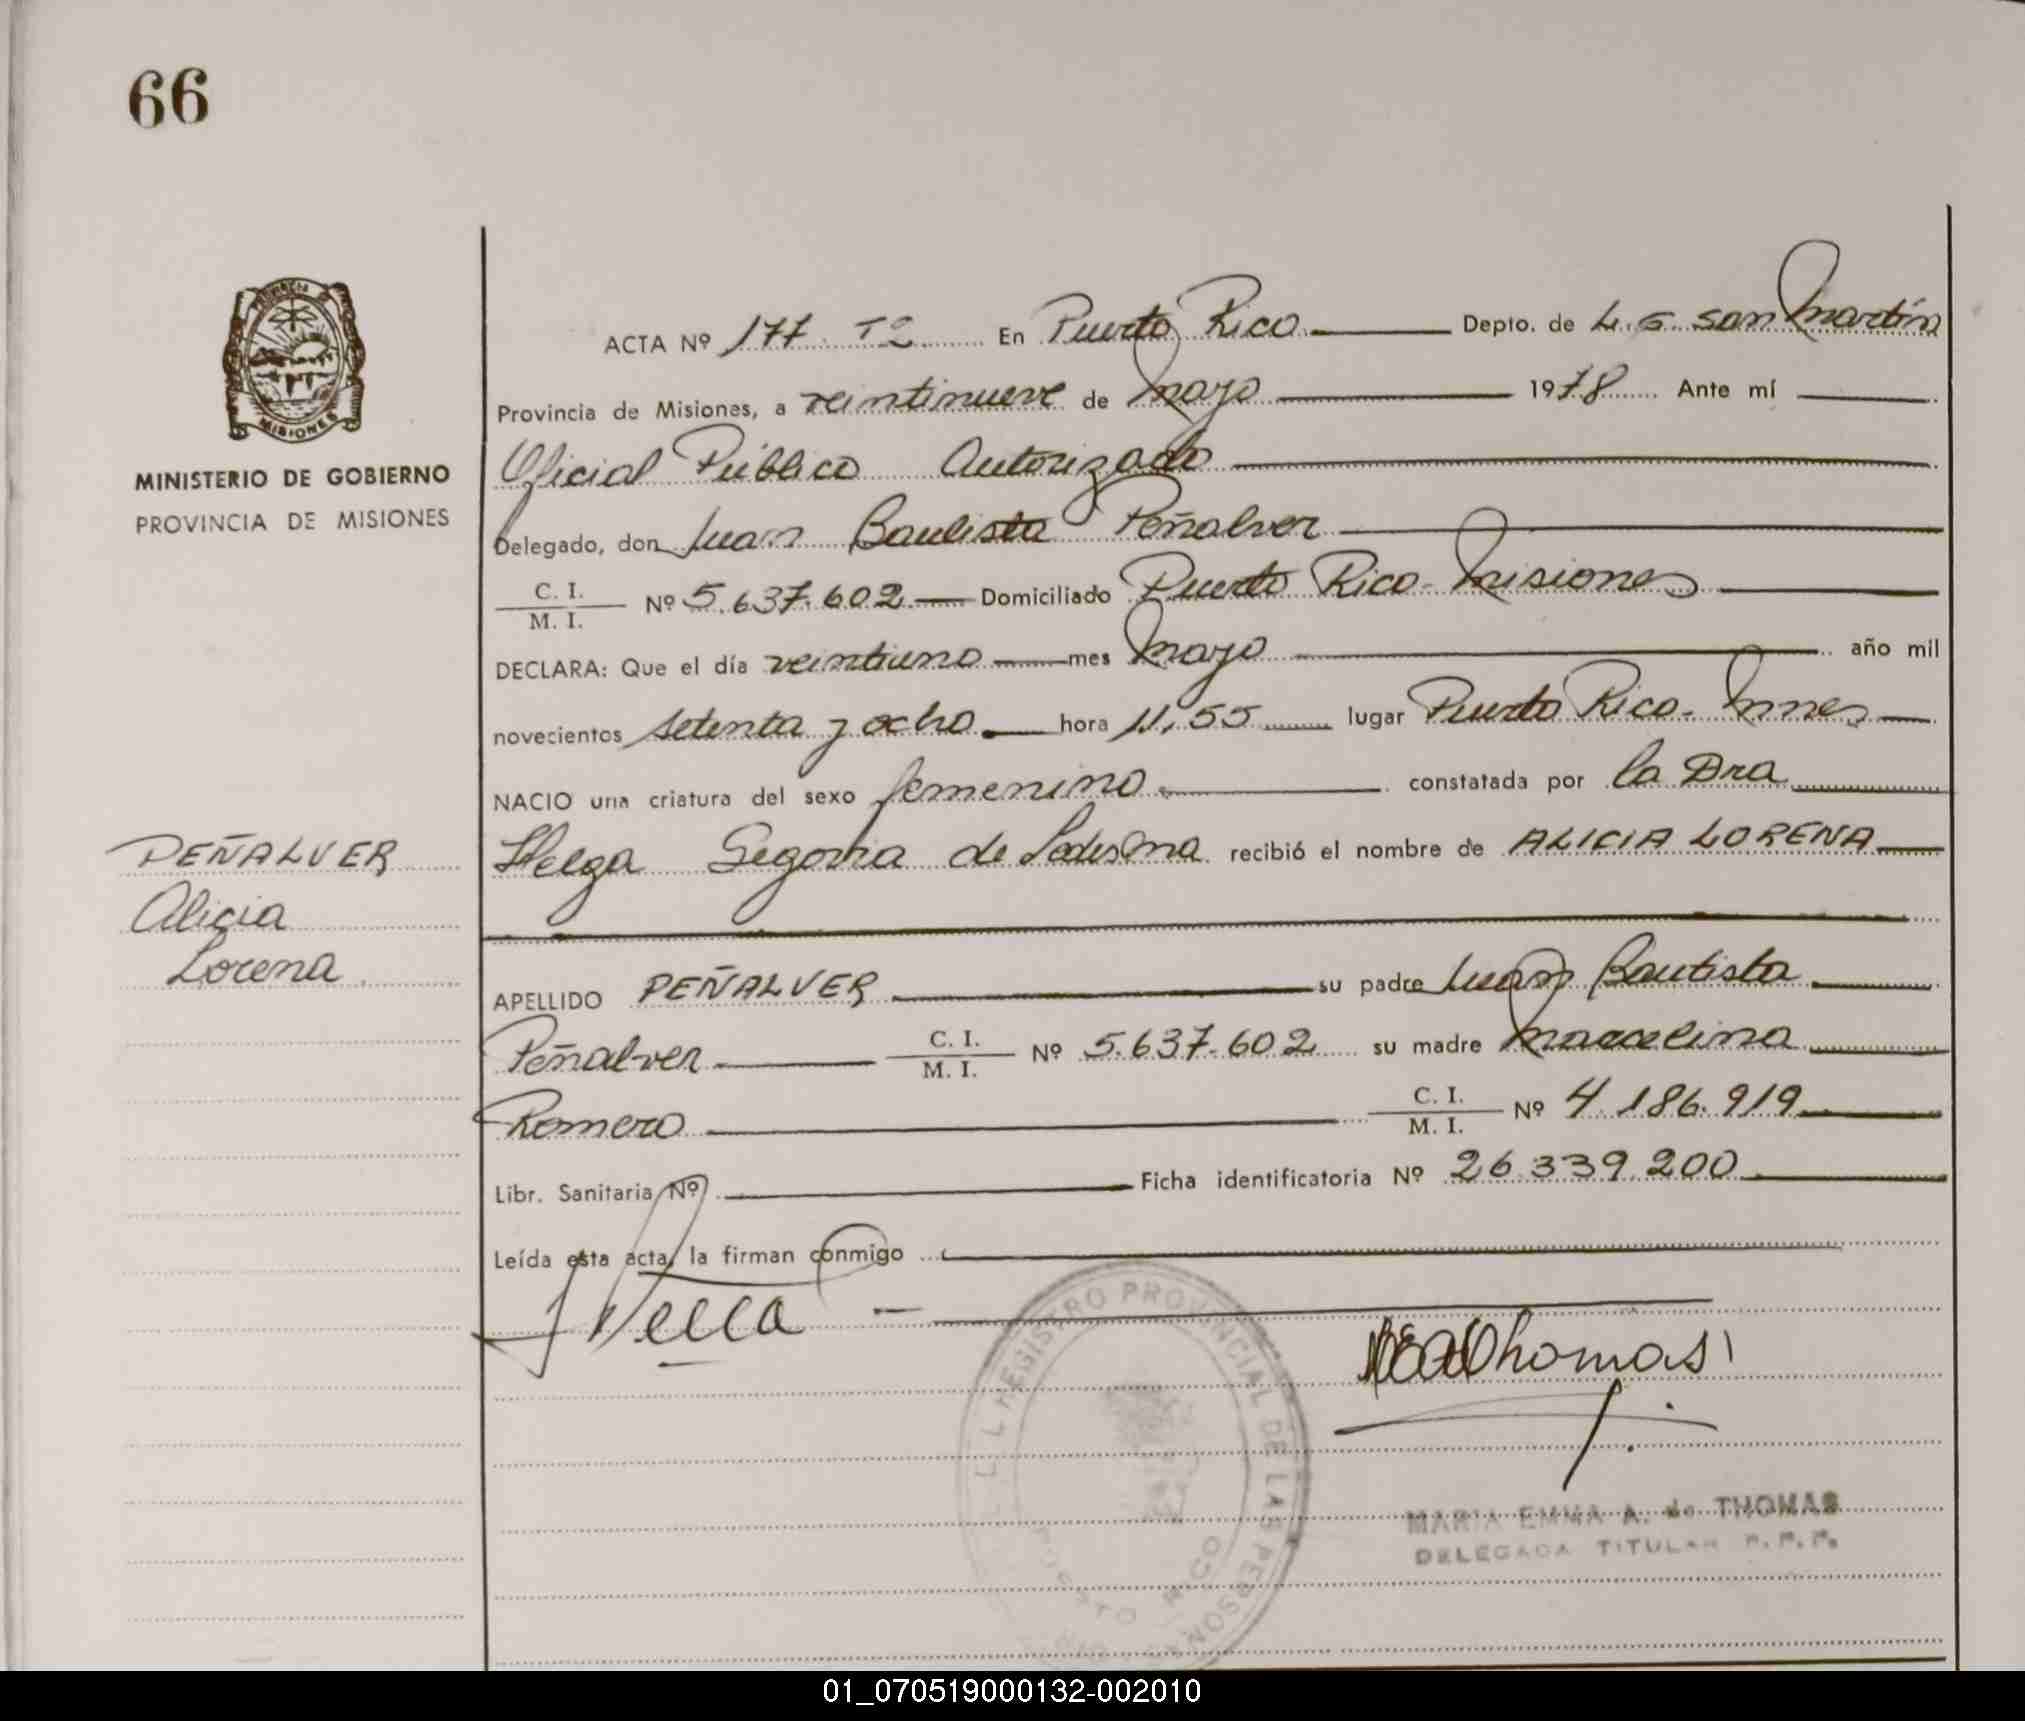 66
PROVINCIA DE
MISIONES
MINISTERIO DE GOBIERNO
PROVINCIA DE MISIONES
PEÑALVER
Alicia
Lorena
ACTA Nº 177 T2 En Puerto Rico Depto. de L. G. San Martín
Provincia de Misiones, a veintinueve de mayo 1978 Ante mí
Oficial Público Autorizado
Delegado, don Juan Bautista Peñalver
C. I.
M. I. Nº 5.637.602 Domiciliado Puerto Rico - Misiones
DECLARA: Que el día veintiuno mes mayo año mil
novecientos setenta y ocho hora 11,55 lugar Puerto Rico - Mnes
NACIO una criatura del sexo femenino constatada por la Dra
Helga Segovia de Ledesma recibió el nombre de ALICIA LORENA
APELLIDO PEÑALVER su padre Juan Bautista
Peñalver C. I. M. I. Nº 5.637.602 su madre Marcelina
Romero C. I. M. I. Nº 4.186.919
Libr. Sanitaria Nº Ficha identificatoria Nº 26.339.200
Leída esta acta, la firman conmigo
Thomas
REGISTRO PROVINCIAL DE LAS PERSONAS
PUERTO RICO
MARIA EMMA A. de THOMAS
DELEGADA TITULAR R. P. P.
01_070519000132-002010